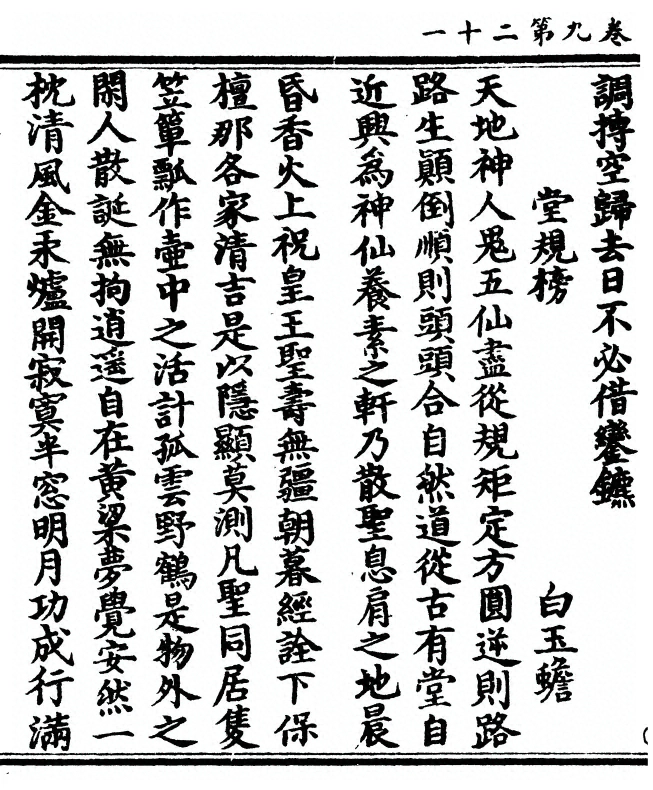 卷九第二十一
調摶空歸去日不必借鑾鑣
堂規榜　白玉蟾
天地神人鬼五仙盡從規矩定方圓逆則路
路生顛倒順則頭頭合自然道從古有堂自
近興爲神仙養素之軒乃散聖息肩之地晨
昏香火上祝皇王聖壽無疆朝暮經詮下保
檀那各家清吉是以隱顯莫測凡聖同居隻
笠簞瓢作壺中之活計孤雲野鶴是物外之
閑人散誕無拘逍遥自在黃粱夢覺安然一
枕清風金汞爐開寂寞半窓明月功成行滿